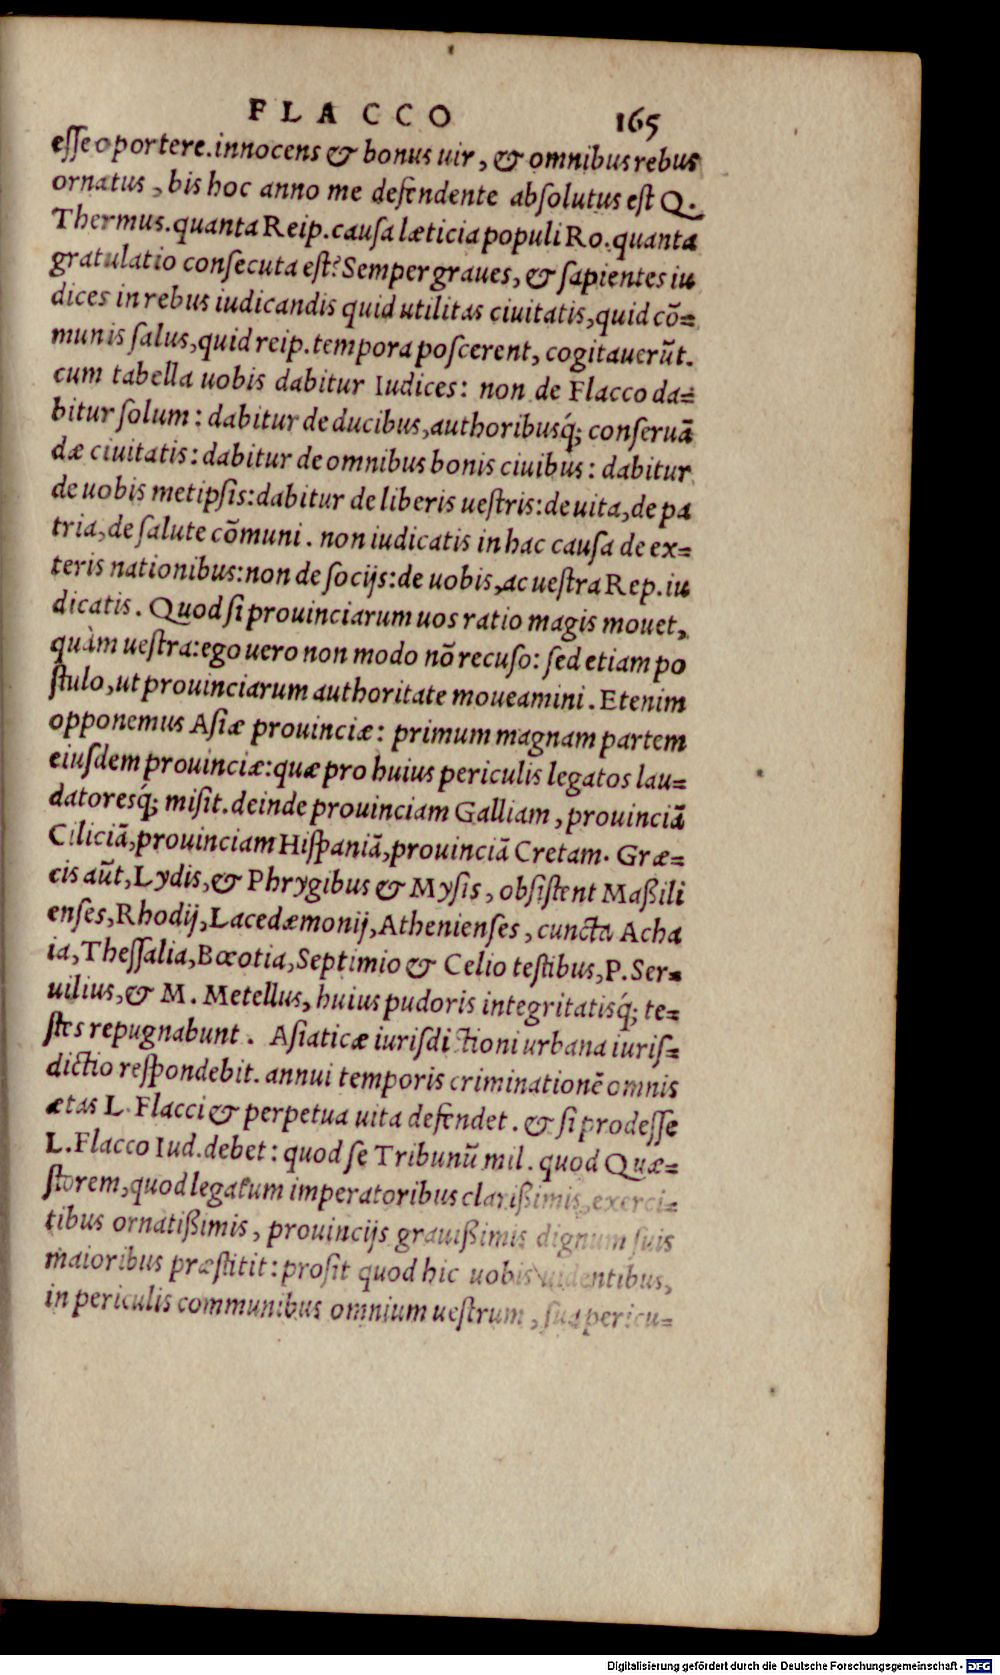 FLACCO 165
eſſe oportere. innocens & bonus uir, & omnibus rebus
ornatus, bis hoc anno me defendente abſolutus eſt Q.
Thermus. quanta Reip. cauſa læticia populi Ro. quanta
gratulatio conſecuta eſt? Semper graues, & ſapientes iu
dices in rebus iudicandis quid utilitas ciuitatis, quid cō=
munis ſalus, quid reip. tempora poſcerent, cogitauerūt.
cum tabella uobis dabitur Iudices: non de Flacco da=
bitur ſolum: dabitur de ducibus, authoribusq́; conſeruā
dæ ciuitatis: dabitur de omnibus bonis ciuibus: dabitur
de uobis metipſis: dabitur de liberis ueſtris: de uita, de pa
tria, de ſalute cōmuni. non iudicatis in hac cauſa de ex=
teris nationibus: non de ſocijs: de uobis, ac ueſtra Rep. iu
dicatis. Quod ſi prouinciarum uos ratio magis mouet,
quàm ueſtra: ego uero non modo nō recuſo: ſed etiam po
ſtulo, ut prouinciarum authoritate moueamini. Etenim
opponemus Aſiæ prouinciæ: primum magnam partem
eiuſdem prouinciæ: quæ pro huius periculis legatos lau=
datoresq́; miſit. deinde prouinciam Galliam, prouinciā
Ciliciā, prouinciam Hiſpaniā, prouinciā Cretam. Græ=
cis aūt, Lydis, & Phrygibus & Myſis, obſiſtent Maßili
enſes, Rhodij, Lacedæmonij, Athenienſes, cuncta Acha
ia, Theſſalia, Bœotia, Septimio & Celio teſtibus, P. Ser=
uilius, & M. Metellus, huius pudoris integritatisq́; te=
ſtes repugnabunt. Aſiaticæ iuriſdictioni urbana iuriſ=
dictio reſpondebit. annui temporis criminationē omnis
ætas L. Flacci & perpetua uita defendet. & ſi prodeſſe
L. Flacco Iud. debet: quod ſe Tribunū mil. quod Quæ=
ſtorem, quod legatum imperatoribus clarißimis, exerci=
tibus ornatißimis, prouincijs grauißimis dignum ſuis
maioribus præſtitit: proſit quod hic uobis uidentibus,
in periculis communibus omnium ueſtrum, ſua pericu=
Digitalisierung gefördert durch die Deutsche Forschungsgemeinschaft - DFG